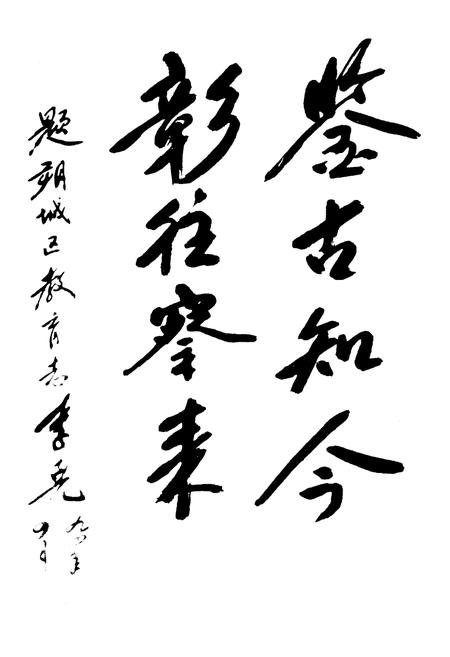 鉴古知今
彰往察来
题朔城区教育志 李
年
月